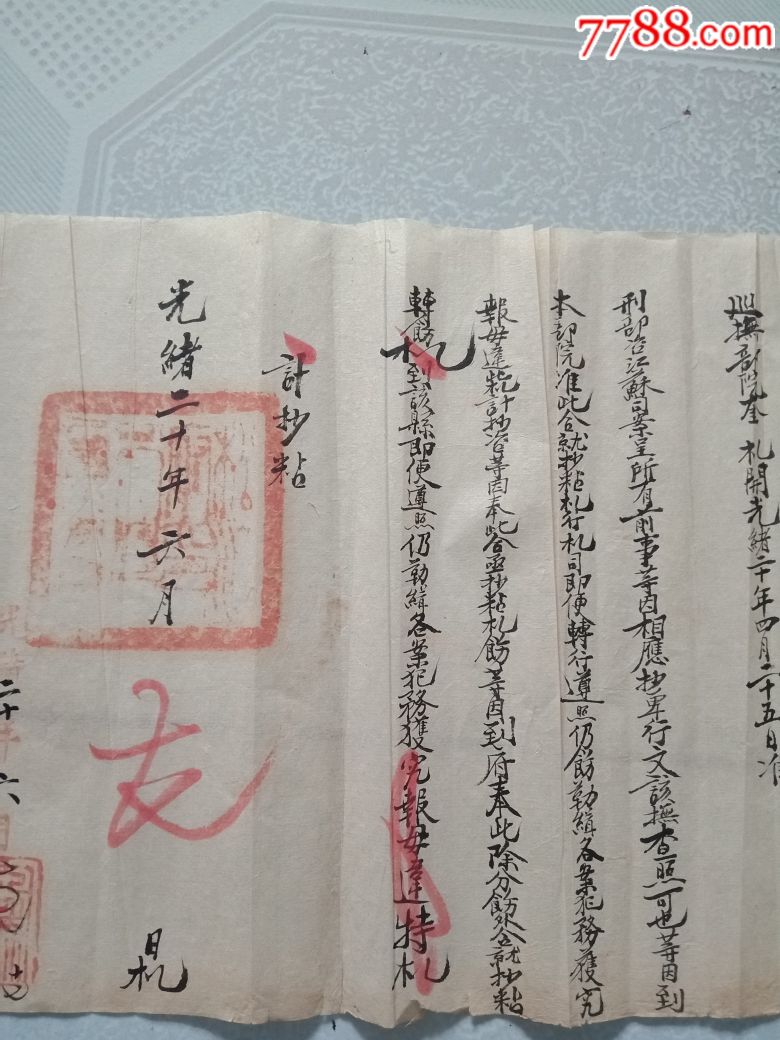 7788.com
巡撫部院奎 札開光緒二十年四月二十五日准
刑部咨江蘇司案呈所有前事等因相應抄單行文該撫查照可也等因到
本部院准此合就抄粘札行札司即便轉行遵照仍飭勒緝各案犯務獲究
報毋違特計抄咨等因奉此合亟抄粘札飭等因到府奉此除分飭外合就抄粘
轉飭札到該縣即便遵照仍勒緝各案犯務獲究報毋違特札
計抄粘
光緒二十年六月
日札
二十
六